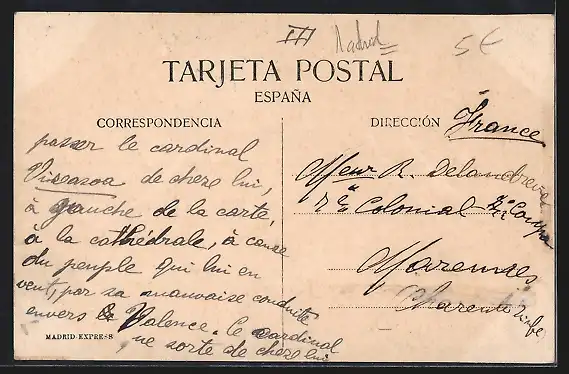 III Madrid 5€
TARJETA POSTAL
ESPAÑA
CORRESPONDENCIA
DIRECCIÓN
France
passer le cardinal
de cheze lui,
à gauche de la carte,
à la cathédrale, à cause
du peuple qui lui en
veut, par sa mauvaise conduite
envers Valence. le cardinal
ne sorte de cheze lui
Meur R. Delandreve
7e Colonial 2e Compa
Marennes
Charente Infe
MADRID-EXPRESS